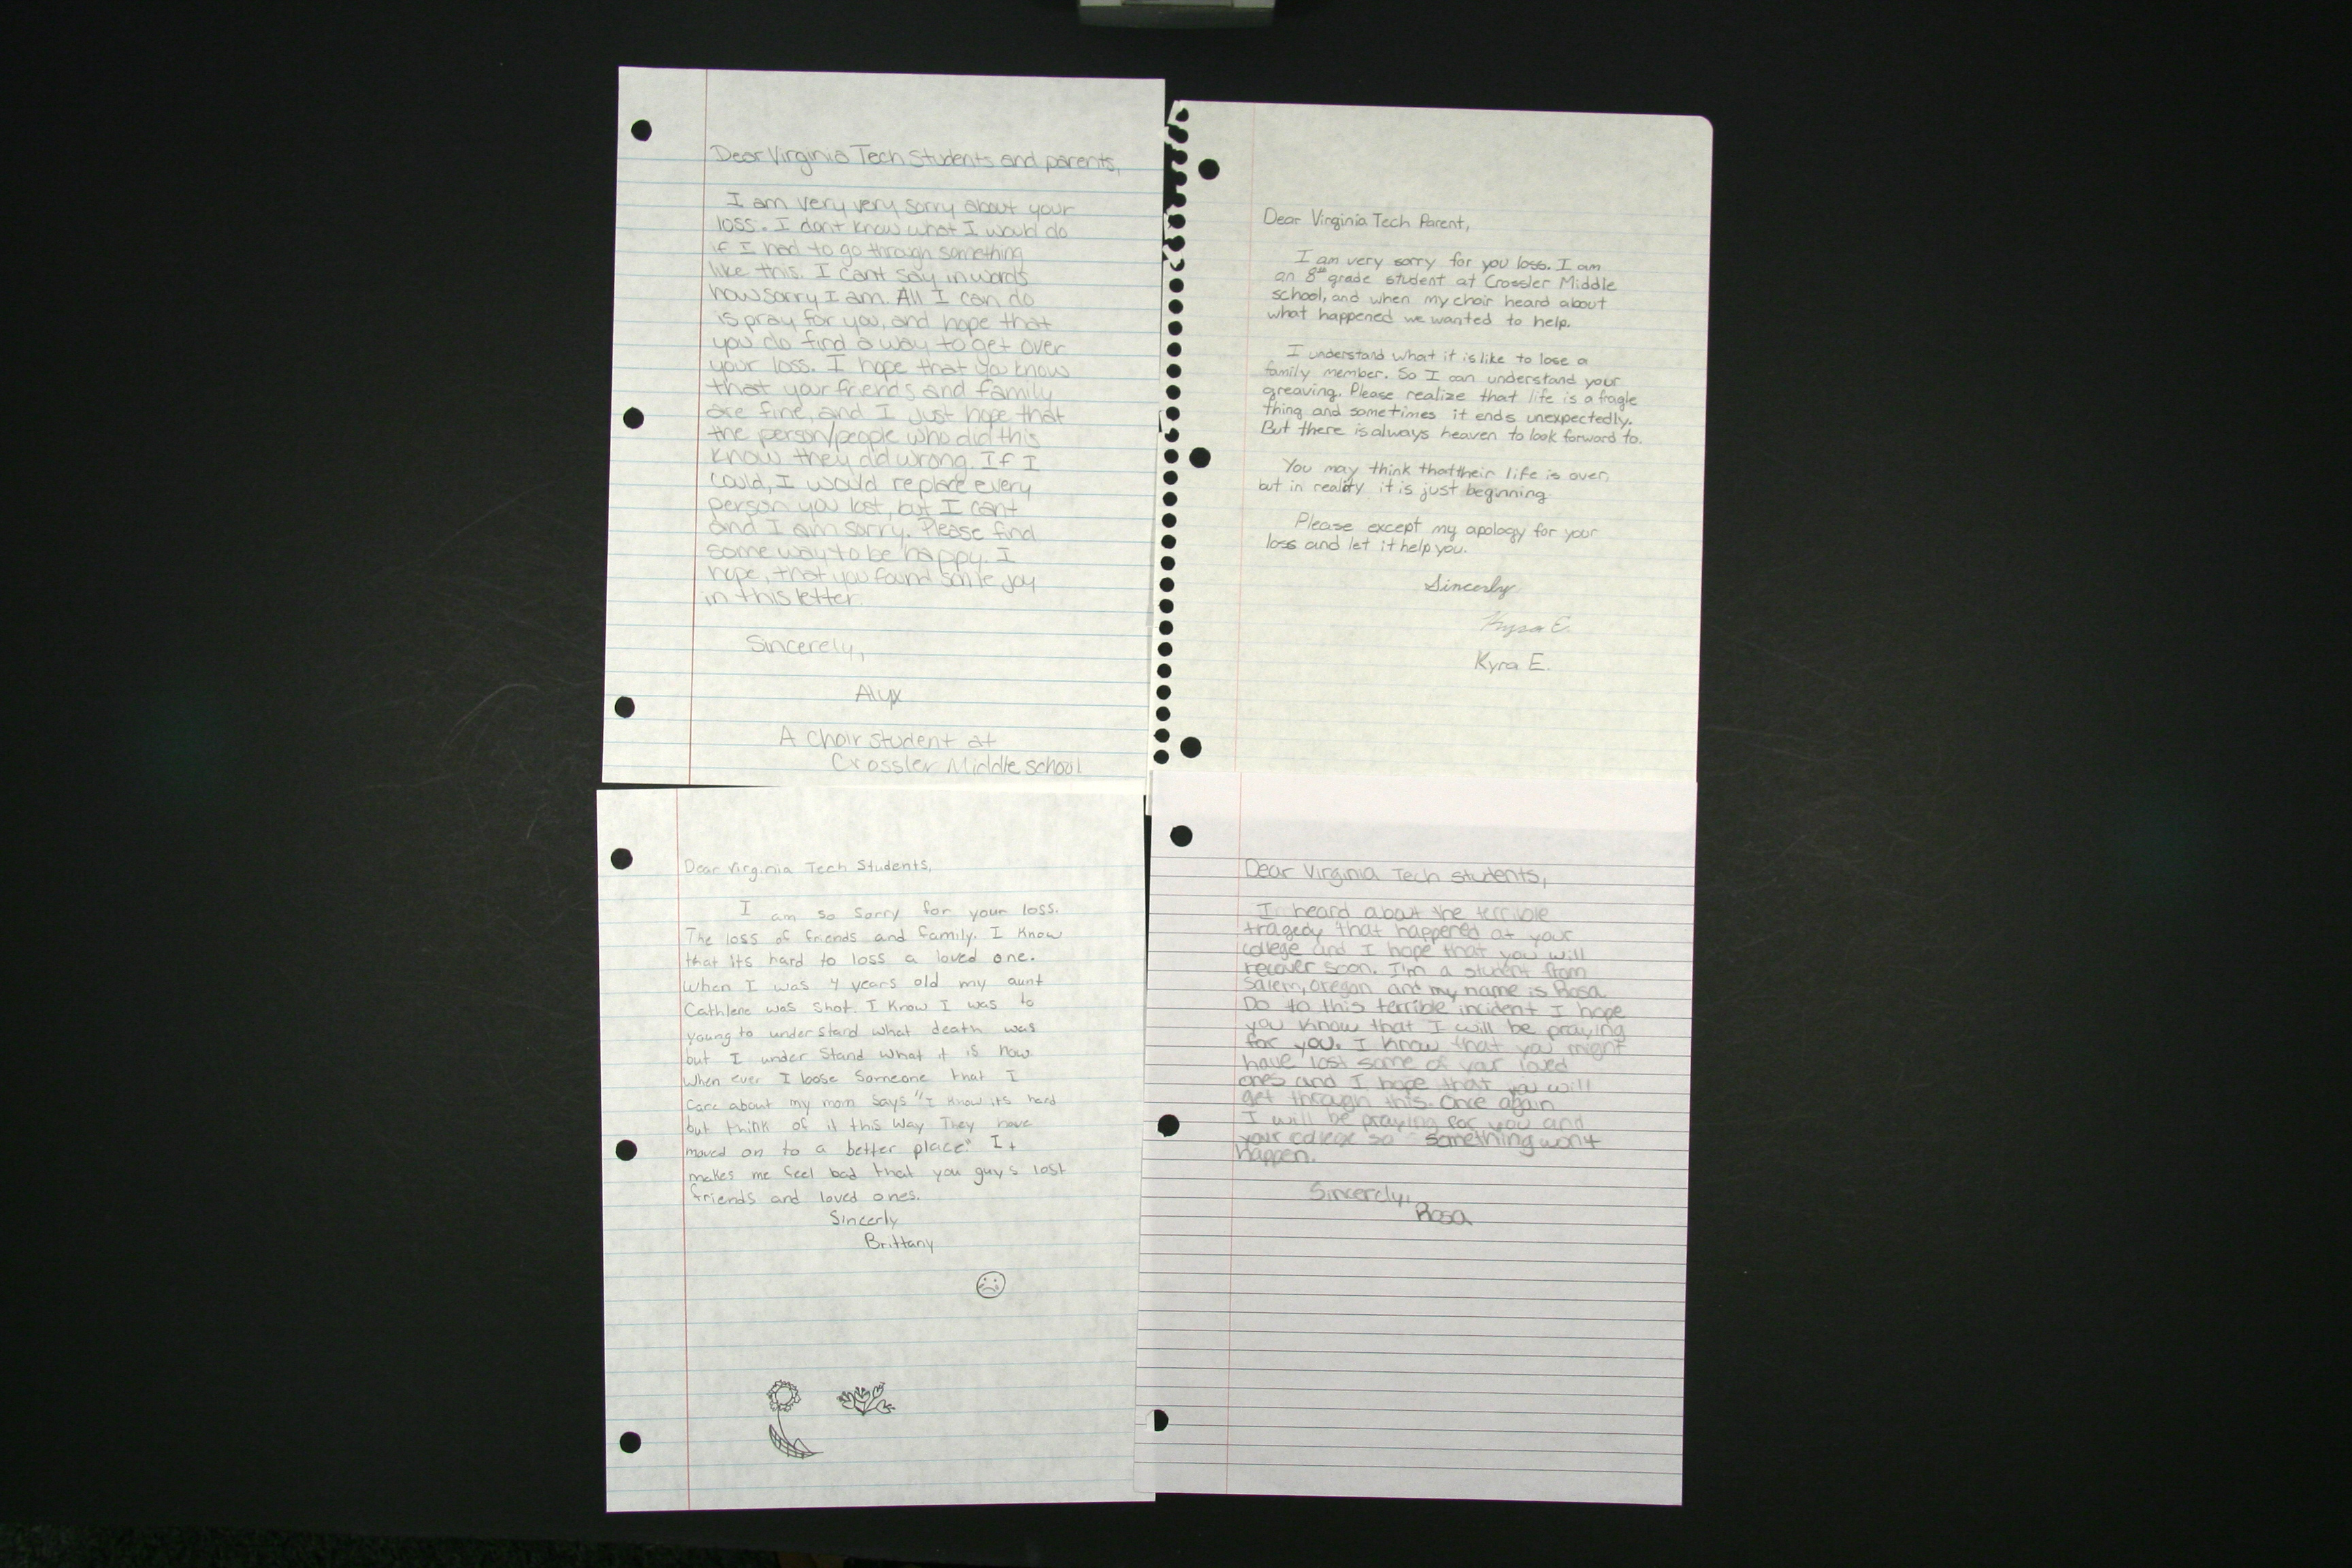 Dear Virginia Tech Students and parents,
I am very very sorry about your
loss. I dont know what I would do
if I had to go through something
like this. I cant say in words
how sorry I am. All I can do
is pray for you, and hope that
you do find a way to get over
your loss. I hope that you know
that your friends and family
are fine, and I just hope that
the person/people who did this
know they did wrong. If I
could, I would replace every
person you lost, but I cant
and I am sorry. Please find
some way to be happy. I
hope, that you found some joy
in this letter.
Sincerely,
Alyx
A Choir student at
Crossler Middle school
Dear Virginia Tech Parent,
I am very sorry for you loss. I am
an 8th grade student at Crossler Middle
school, and when my choir heard about
what happened we wanted to help.
I understand what it is like to lose a
family member. So I can understand your
greaving. Please realize that life is a fragle
thing and sometimes it ends unexpectedly.
But there is always heaven to look forward to.
You may think that their life is over,
but in reality it is just beginning.
Please except my apology for your
loss and let it help you.
Sincerly
Kyra E.
Kyra E.
Dear Virginia Tech Students,
I am so sorry for your loss.
The loss of friends and family. I know
that its hard to loss a loved one.
When I was 4 years old my aunt
Cathlene was shot. I know I was to
young to under stand what death was
but I under stand what it is now.
When ever I loose someone that I
care about my mom says "I know its hard
but think of it this way They have
moved on to a better place." It
makes me feel bad that you guys lost
friends and loved ones.
Sincerly
Brittany
Dear Virginia Tech students,
I heard about the terrible
tragedy that happened at your
college and I hope that you will
recover soon. I'm a student from
Salem, Oregon and my name is Rosa.
Do to this terrible incident I hope
you know that I will be praying
for you. I know that you might
have lost some of your loved
ones and I hope that you will
get through this. Once again
I will be praying for you and
your college so something wont
happen.
Sincerely,
Rosa